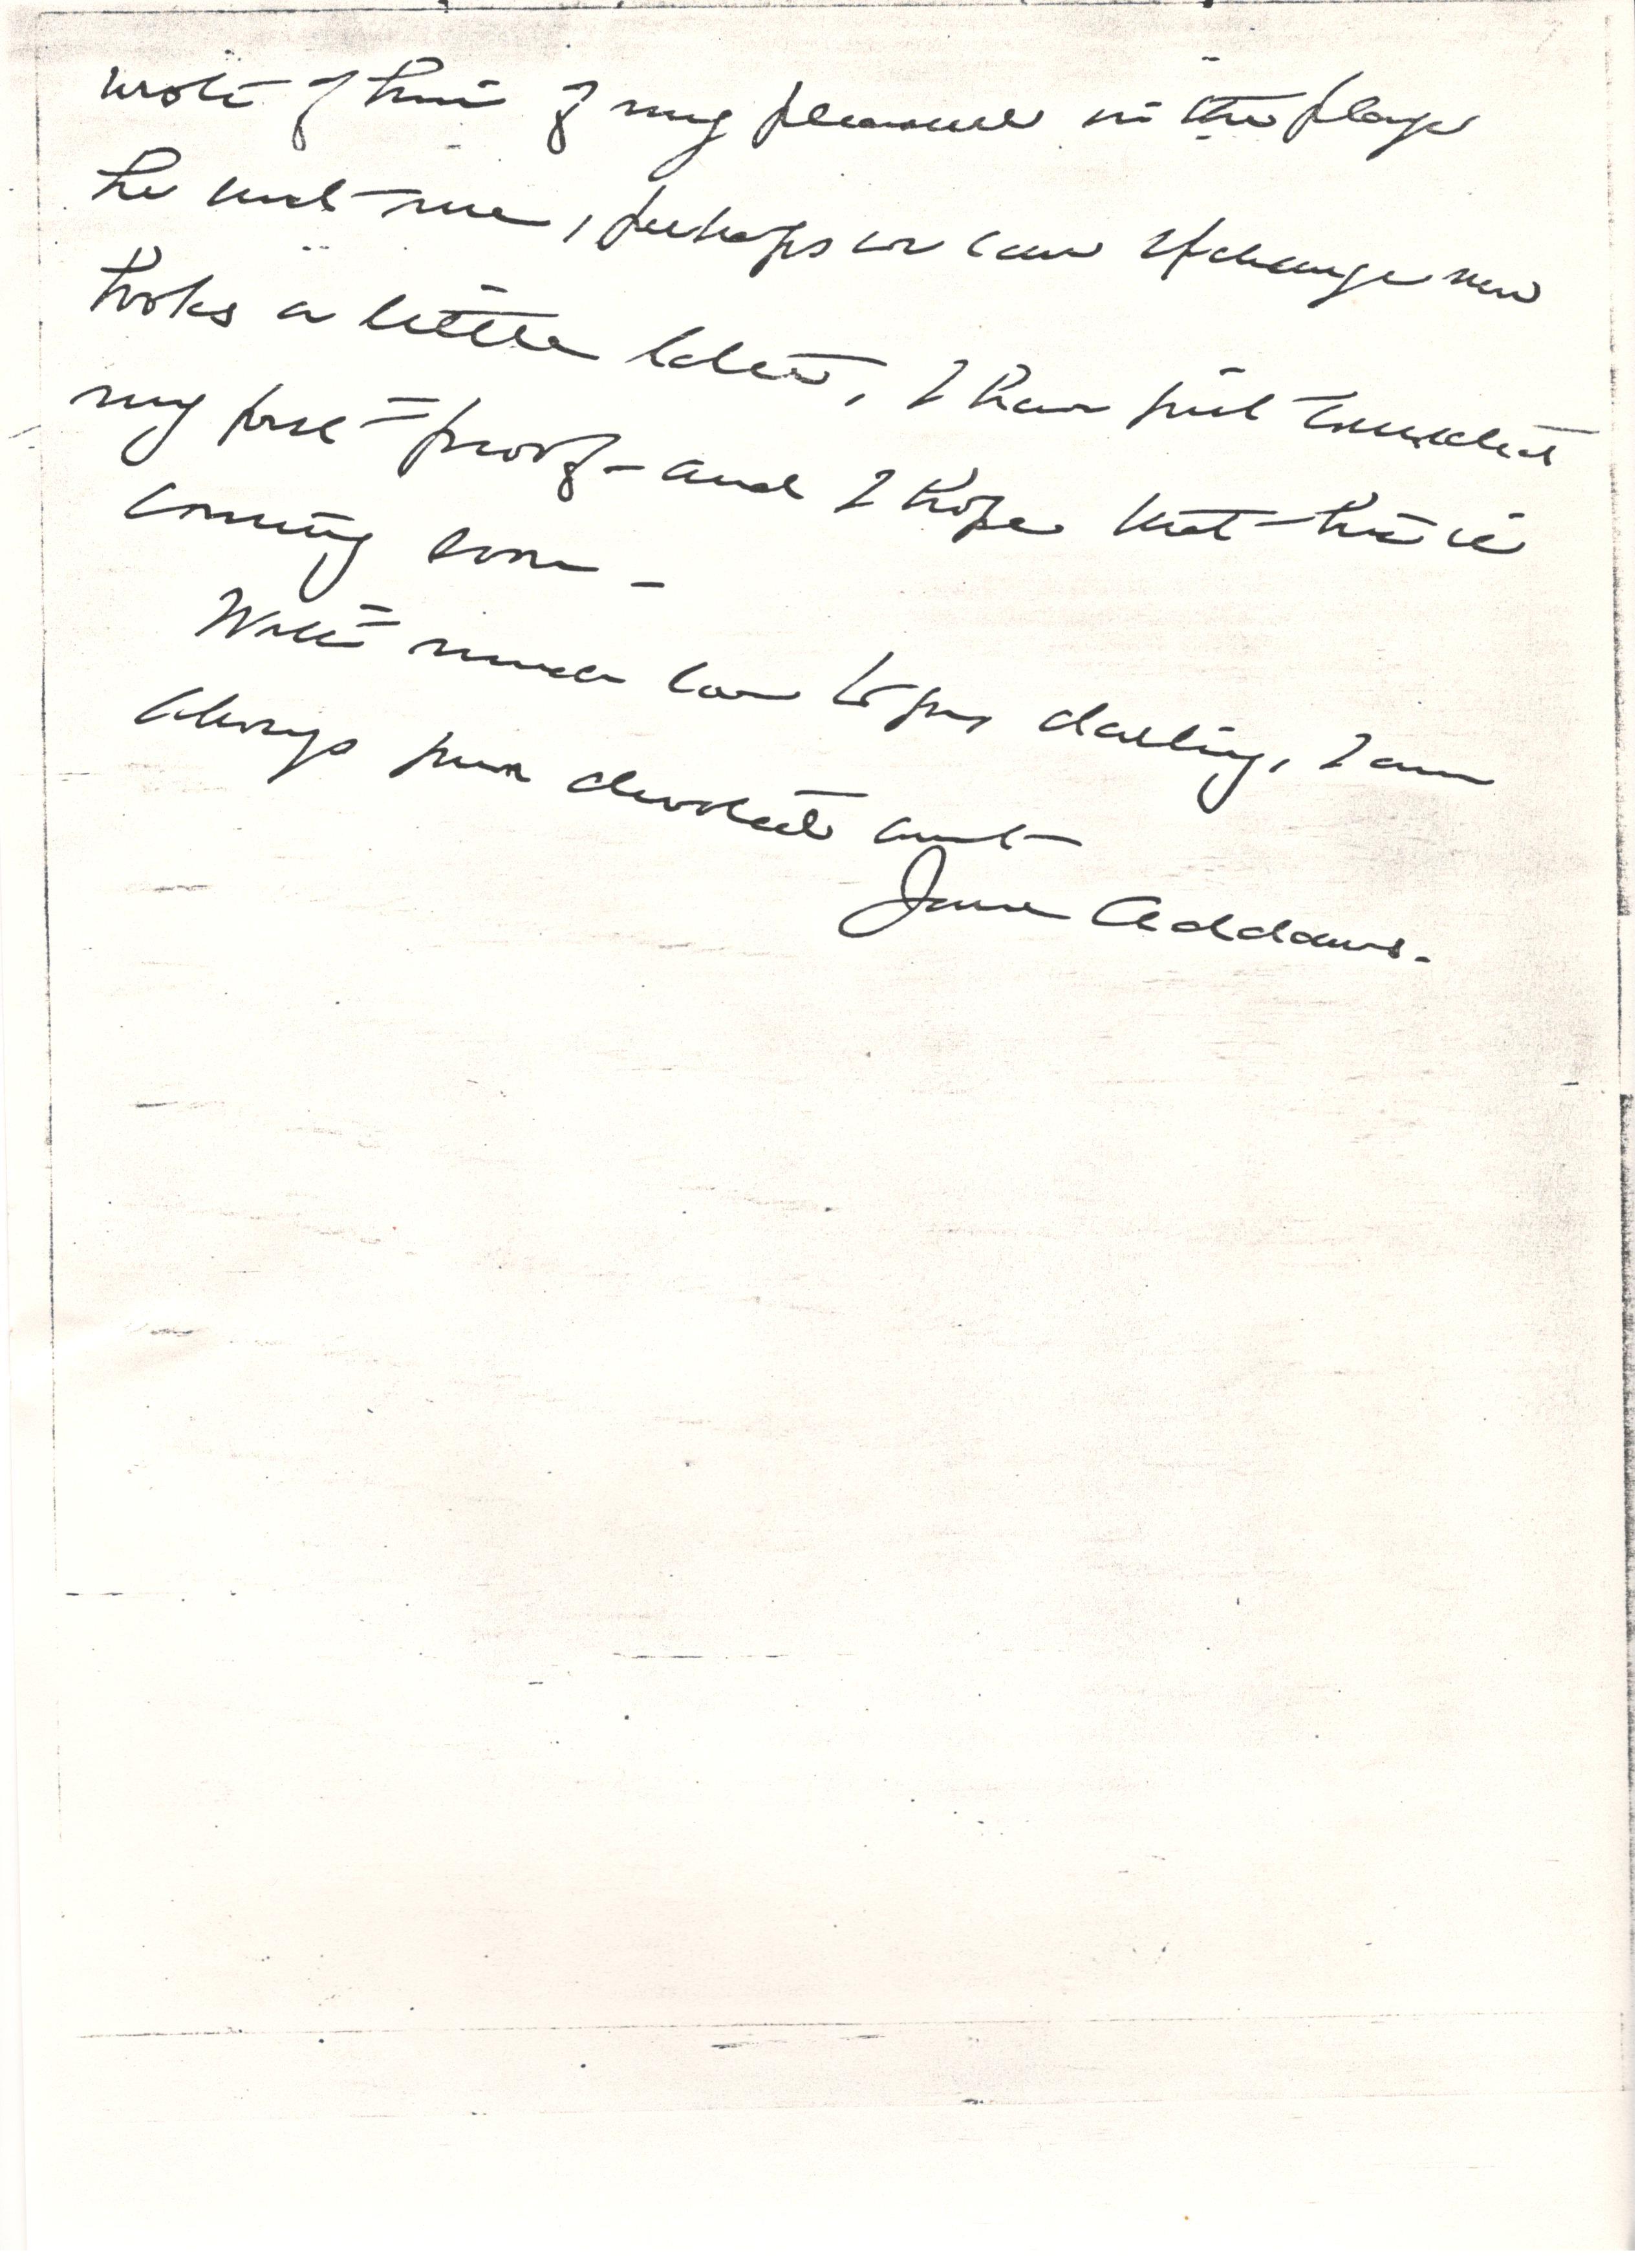 wrote of him of my pleasure in the plays
he sent me, perhaps we can exchange new
books a little later, I have just corrected
my first proof - and I hope that his is
coming soon -
With much love to you, darling, I am
always your devoted aunt
Jane Addams.